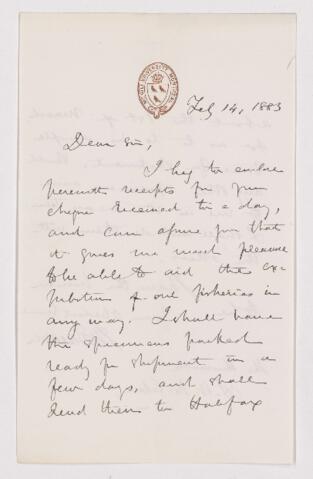 McGILL UNIVERSITY MONTREAL
Feb 14, 1883
Dear Sir,
I beg to enclose
herewith receipts for your
cheque received to-day,
and can assure you that
it gives me much pleasure
to be able to aid the ex-
hibition of our fisheries in
any way. I shall have
the specimens packed
ready for shipment in a
few days, and shall
send them to Halifax